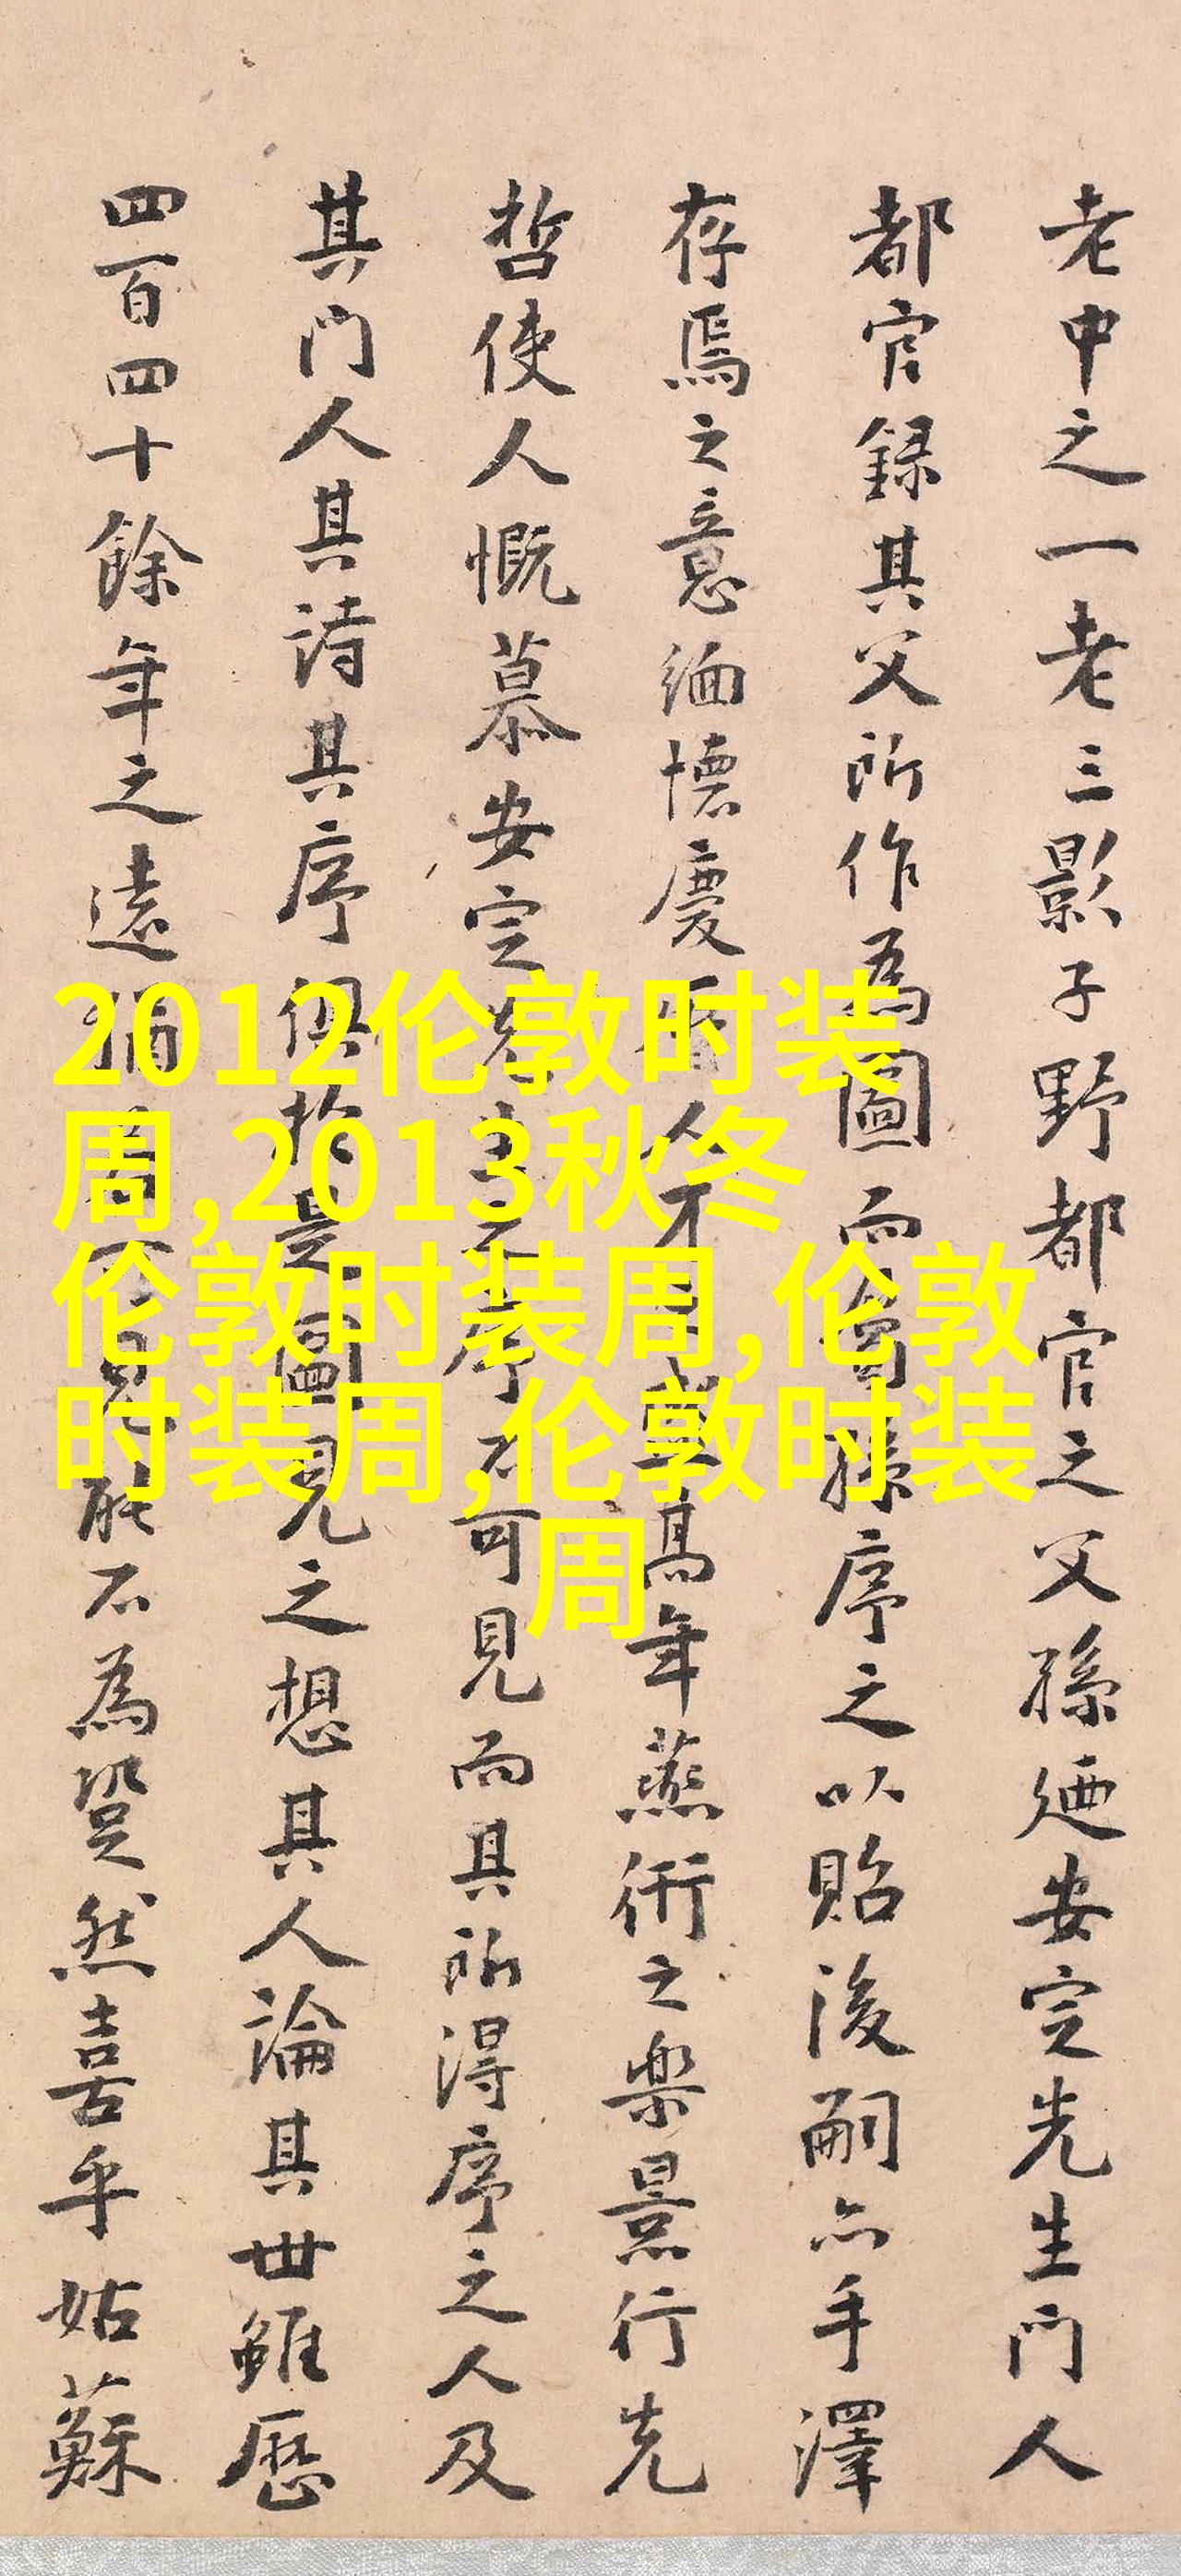 老中之一老三影子野都官之父孫廼安定先生門人
都官録其父所作為圖而為孫序之以貽後嗣亦手澤
存焉之意緬懷慶暦人才高年燕衎之樂景行先
哲使人慨慕安定先生之序不可見而具所得序之人及
其門人其詩其序俱於是圖見之想其人論其世雖歷
四百四十餘年之遠猶能不為跫然喜乎姑蘇
2012伦敦时装
周,2013秋冬
伦敦时装周,伦敦
时装周,伦敦时装
周